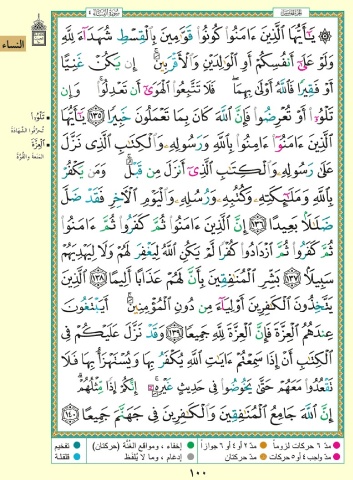 الجزء الخامس
سورة النساء ٤
النساء
۞ يَٰٓأَيُّهَا ٱلَّذِينَ ءَامَنُوا۟ كُونُوا۟ قَوَّٰمِينَ بِٱلْقِسْطِ شُهَدَآءَ لِلَّهِ
وَلَوْ عَلَىٰٓ أَنفُسِكُمْ أَوِ ٱلْوَٰلِدَيْنِ وَٱلْأَقْرَبِينَ ۚ إِن يَكُنْ غَنِيًّا
أَوْ فَقِيرًا فَٱللَّهُ أَوْلَىٰ بِهِمَا ۖ فَلَا تَتَّبِعُوا۟ ٱلْهَوَىٰٓ أَن تَعْدِلُوا۟ ۚ وَإِن
تَلْوُۥٓا۟ أَوْ تُعْرِضُوا۟ فَإِنَّ ٱللَّهَ كَانَ بِمَا تَعْمَلُونَ خَبِيرًا ١٣٥ يَٰٓأَيُّهَا
ٱلَّذِينَ ءَامَنُوٓا۟ ءَامِنُوا۟ بِٱللَّهِ وَرَسُولِهِۦ وَٱلْكِتَٰبِ ٱلَّذِى نَزَّلَ
عَلَىٰ رَسُولِهِۦ وَٱلْكِتَٰبِ ٱلَّذِىٓ أَنزَلَ مِن قَبْلُ ۚ وَمَن يَكْفُرْ
بِٱللَّهِ وَمَلَٰٓئِكَتِهِۦ وَكُتُبِهِۦ وَرُسُلِهِۦ وَٱلْيَوْمِ ٱلْءَاخِرِ فَقَدْ ضَلَّ
ضَلَٰلًۢا بَعِيدًا ١٣٦ إِنَّ ٱلَّذِينَ ءَامَنُوا۟ ثُمَّ كَفَرُوا۟ ثُمَّ ءَامَنُوا۟
ثُمَّ كَفَرُوا۟ ثُمَّ ٱزْدَادُوا۟ كُفْرًا لَّمْ يَكُنِ ٱللَّهُ لِيَغْفِرَ لَهُمْ وَلَا لِيَهْدِيَهُمْ
سَبِيلًۢا ١٣٧ بَشِّرِ ٱلْمُنَٰفِقِينَ بِأَنَّ لَهُمْ عَذَابًا أَلِيمًا ١٣٨ ٱلَّذِينَ
يَتَّخِذُونَ ٱلْكَٰفِرِينَ أَوْلِيَآءَ مِن دُونِ ٱلْمُؤْمِنِينَ ۚ أَيَبْتَغُونَ
عِندَهُمُ ٱلْعِزَّةَ فَإِنَّ ٱلْعِزَّةَ لِلَّهِ جَمِيعًا ١٣٩ وَقَدْ نَزَّلَ عَلَيْكُمْ فِى
ٱلْكِتَٰبِ أَنْ إِذَا سَمِعْتُمْ ءَايَٰتِ ٱللَّهِ يُكْفَرُ بِهَا وَيُسْتَهْزَأُ بِهَا فَلَا
تَقْعُدُوا۟ مَعَهُمْ حَتَّىٰ يَخُوضُوا۟ فِى حَدِيثٍ غَيْرِهِۦٓ ۚ إِنَّكُمْ إِذًا مِّثْلُهُمْ ۗ
إِنَّ ٱللَّهَ جَامِعُ ٱلْمُنَٰفِقِينَ وَٱلْكَٰفِرِينَ فِى جَهَنَّمَ جَمِيعًا ١٤٠
تَلْوُوا
تُحَرِّفُوا الشَّهَادَةَ
الْعِزَّةَ
المَنَعَةَ وَالقُوَّةَ
مدّ ٦ حركات لزوماً مدّ ٢ أو ٤ أو ٦ جوازاً إخفاء، ومواقع الغُنَّة (حركتان) تفخيم
مدّ واجب ٤ أو ٥ حركات مدّ حركتان إدغام، وما لا يُلفَظ قلقلة
١٠٠